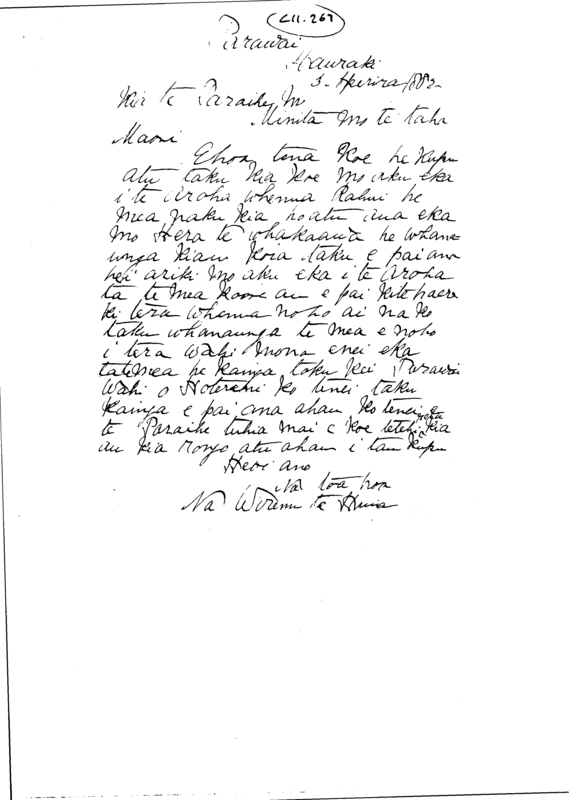 C11.267
Parawai
Hauraki
3. Aperira 1882
Kia te Paraihe, M
Minita mo te taha
Maori
Ehoa, tena koe he kupu
atu taku kia koe mo aku eka
i te Aroha whenua Rahui he
mea naku kia hoatu aua eka
mo Hera te whakaawa he whana
unga kiau kora taku e pai ana
hei ariki mo aku eka i te Aroha
ta te mea kaore au e pai kitehaere
ki tera whenua noho ai na ko
taku whanaunga te mea e noho
i tera wahi mona enei eka
tatemea he kainga toku kei Parawai
wahi o Hotereni ko tenei taku
kainga e pai ana ahau ko tenei e
te Paraihe tuhia mai e koe tetehi reta kia
au kia rongo atu ahau i tau kupu
Heoi ano
Na toa hoa
Na Wiremu te Huia